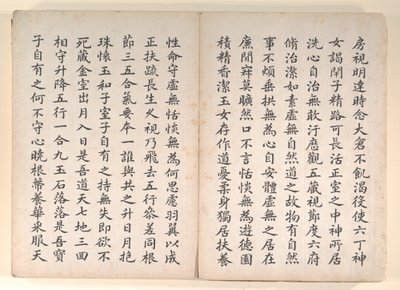 房視明達時念大倉不飢渴役使六丁神
女謁閉子精路可長活正室之中神所居
洗心自治無敢汙歷觀五藏視節度六府
脩治潔如素虛無自然道之故物有自然
事不煩垂拱無為心自安體虛無之居在
廉間寂莫曠然口不言恬惔無為遊德園
積精香潔玉女存作道憂柔身獨居扶養
性命守虛無恬惔無為何思慮羽翼以成
正扶疏長生久視乃飛去五行叅差同根
節三五合氣要本一誰與共之升日月抱
珠懷玉和子室子自有之持無失即欲不
死藏金室出月入日是吾道天七地三回
相守升降五行一合九玉石落落是吾寶
子自有之何不守心曉根蒂養華采服天